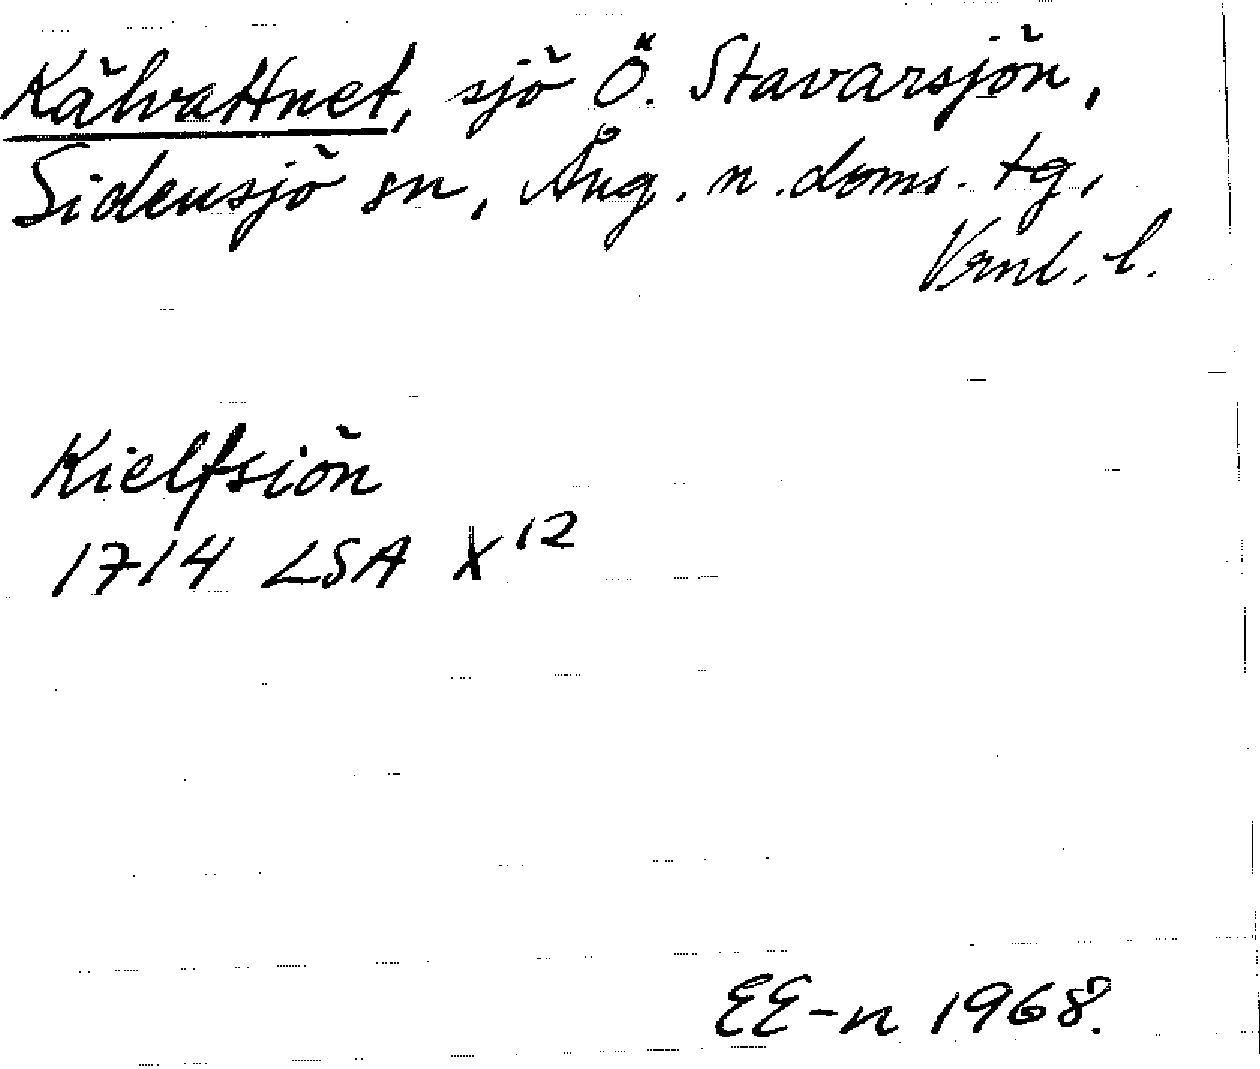 Kälvattnet, sjö Ö. Stavarsjön,
Sidensjö sn, Ång. n. doms. tg,
Vrnl. l.
Kielfsiön
1714 LSA X 12
EE-n 1968.